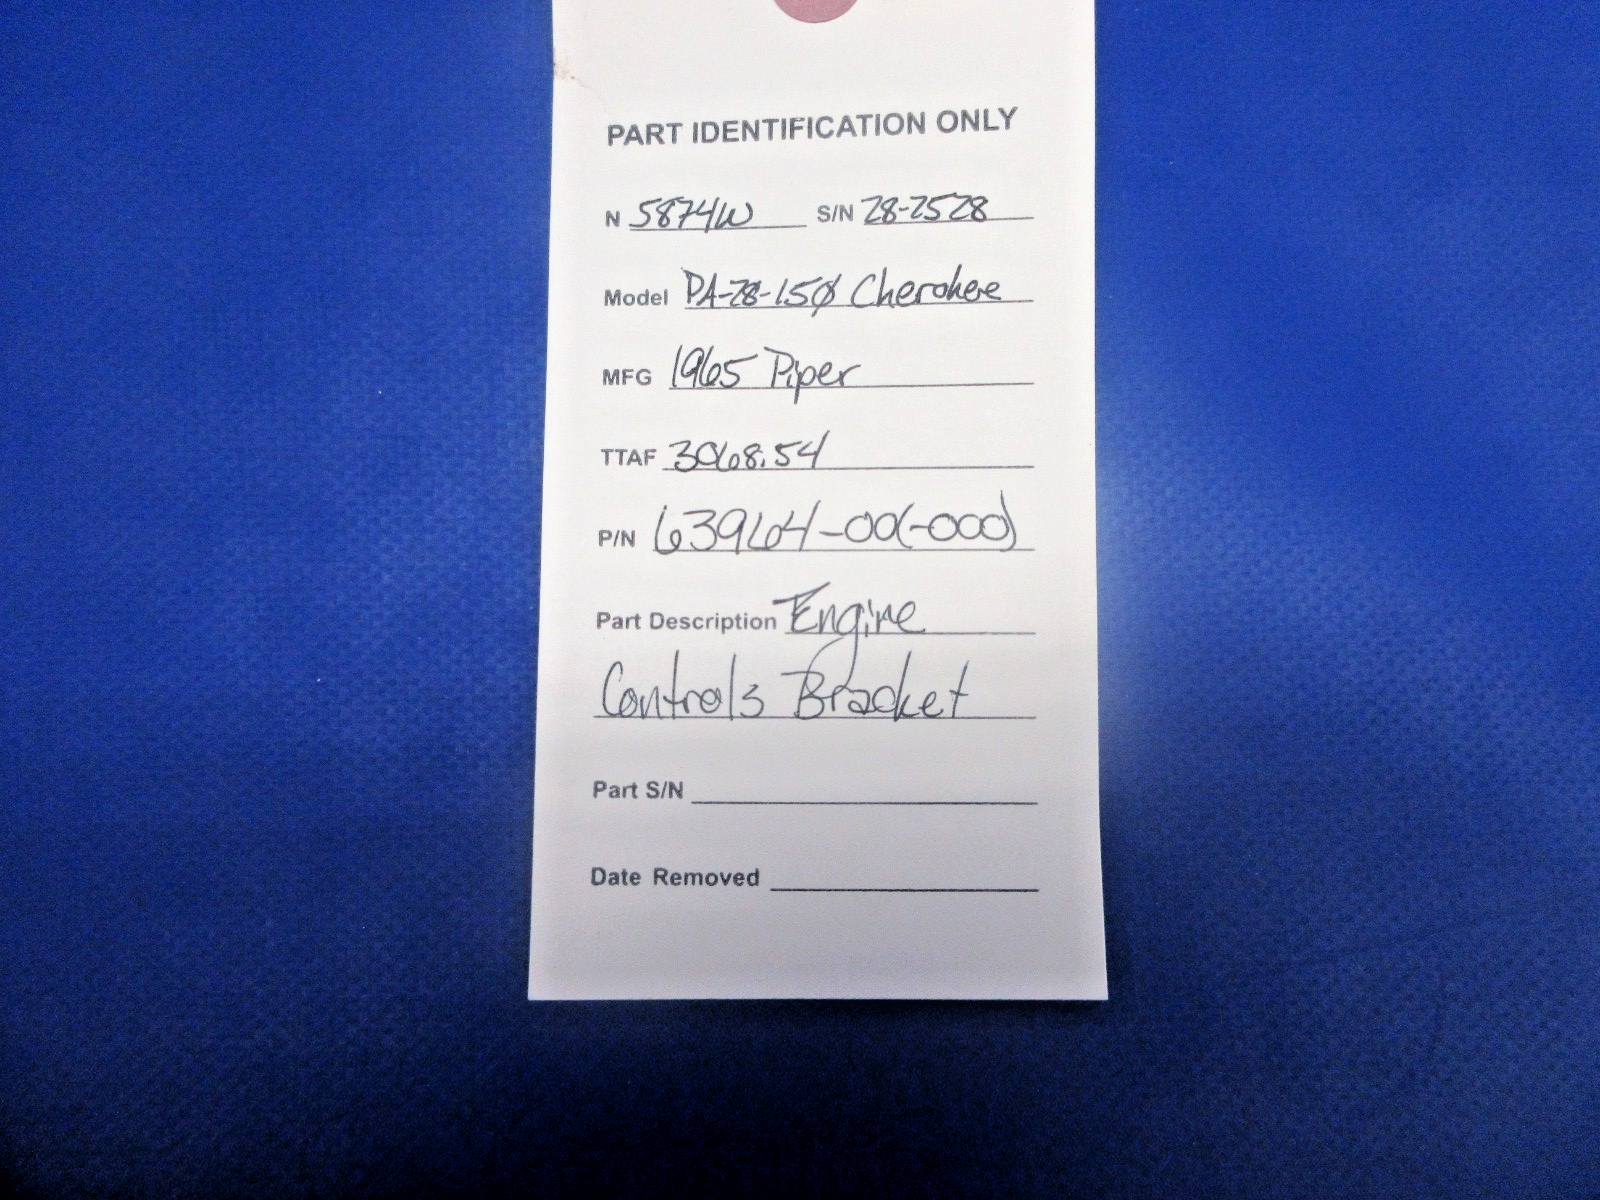 PART IDENTIFICATION ONLY
N 5874W S/N 28-2528
Model PA-28-150 Cherokee
MFG 1965 Piper
TTAF 3068.54
P/N 63964-00(-000)
Part Description Engine
Controls Bracket
Part S/N
Date Removed